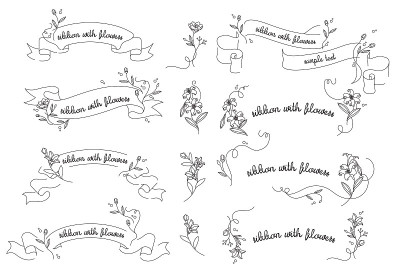 ribbon with flowers
ribbon with flowers
sample text
ribbon with flowers
ribbon with flowers
ribbon with flowers
ribbon with flowers
ribbon with flowers
ribbon with flowers